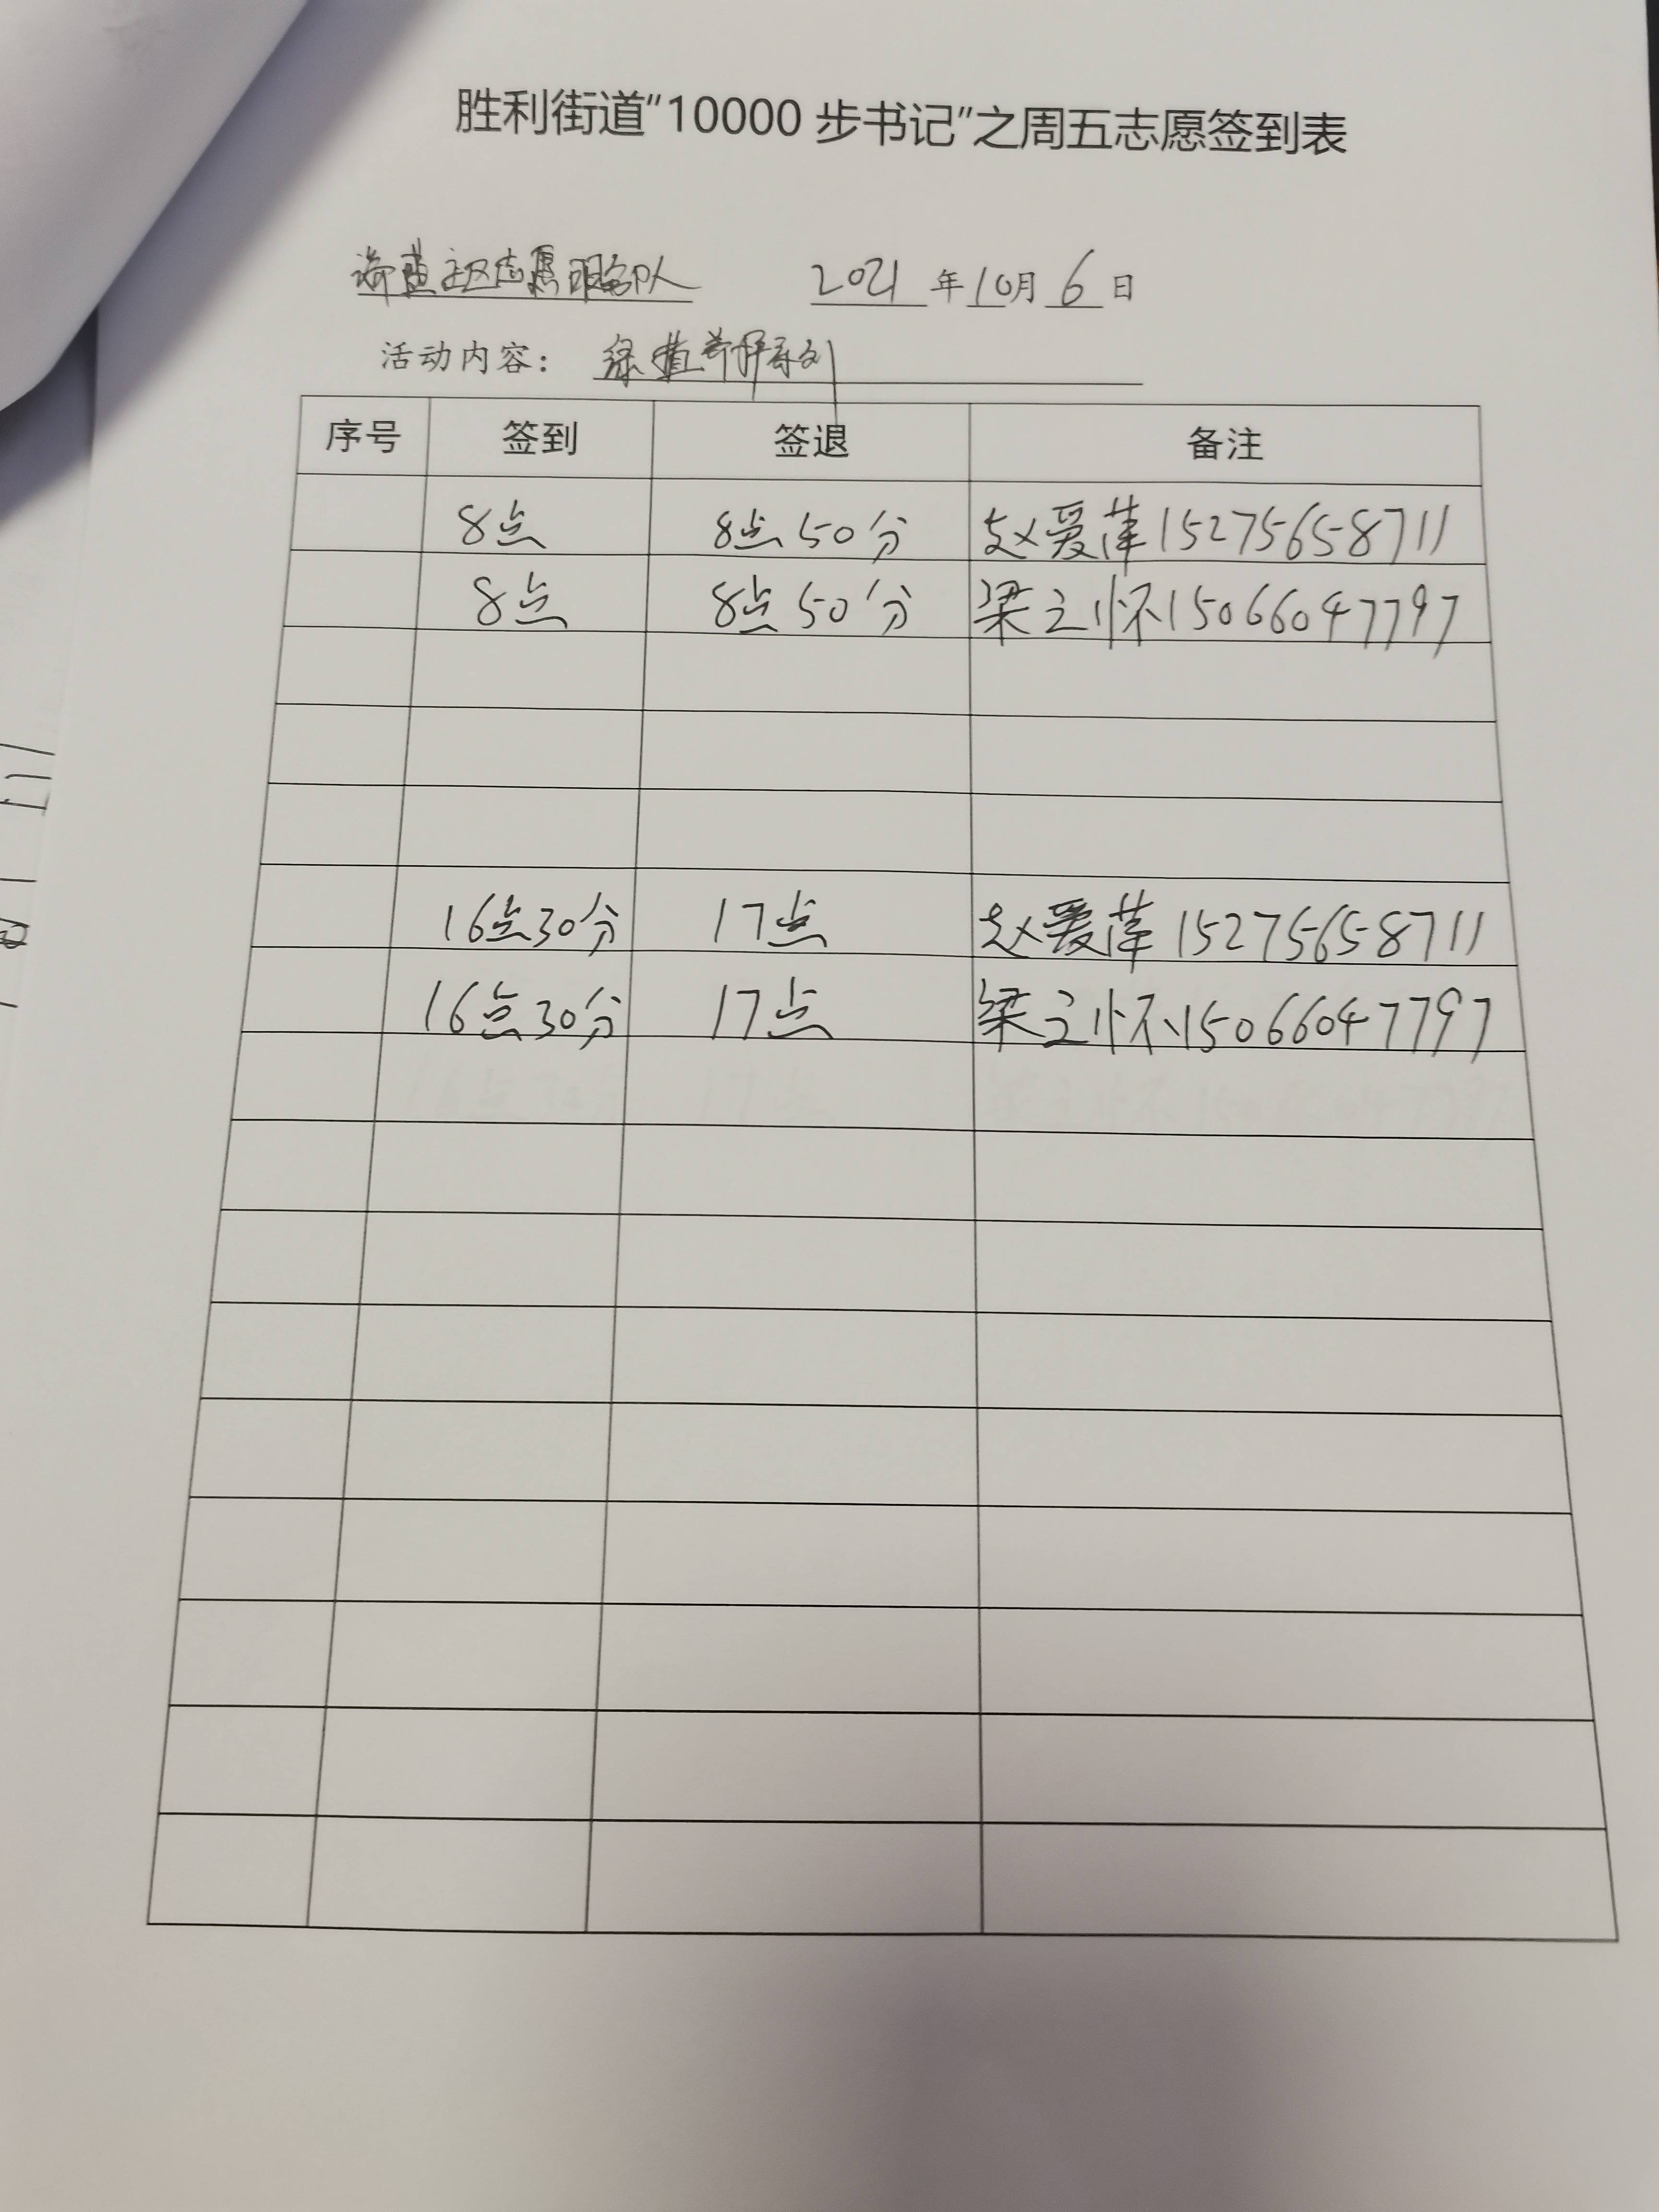 胜利街道“10000步书记”之周五志愿签到表
社区志愿服务队 2021年10月6日
活动内容：绿植养护系列
序号 签到 签退 备注
8点 8点50分 赵爱萍15275658711
8点 8点50分 梁之怀15066047797
16点30分 17点 赵爱萍15275658711
16点30分 17点 梁之怀15066047797